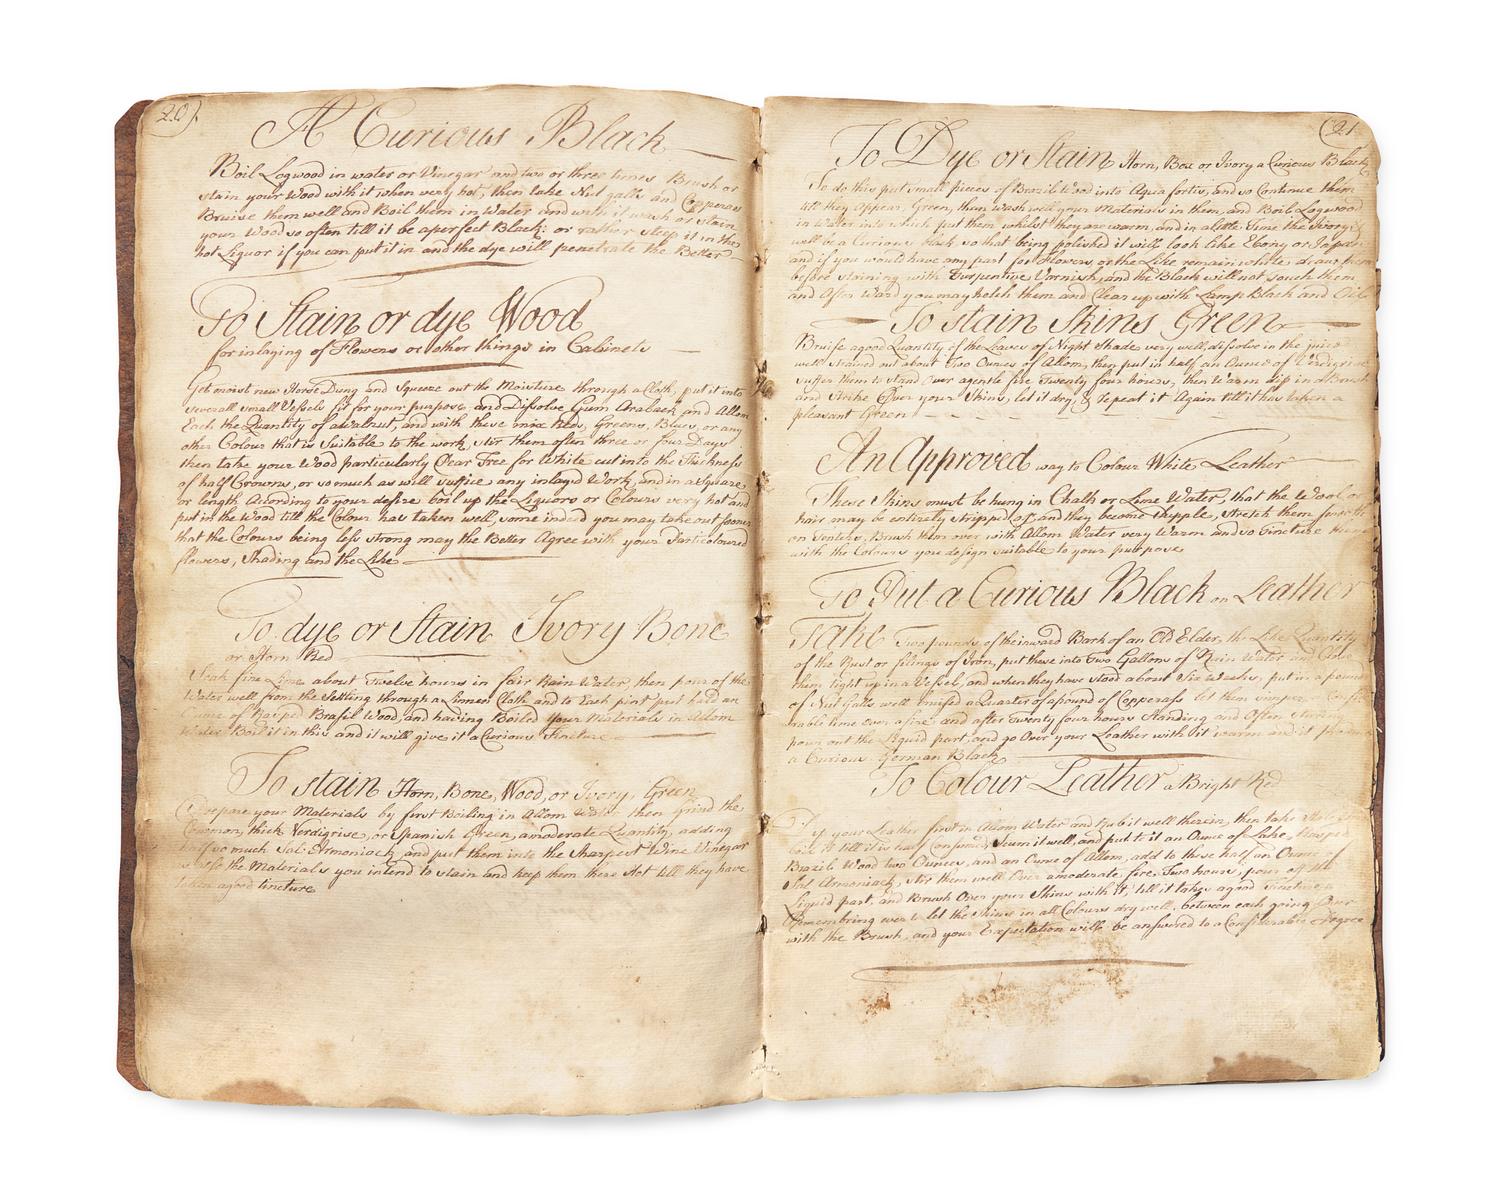 20)
A Curious Black
Boil Logwood in water or Vinegar and two or three times Brush or
stain your Wood with it when very hot, then take Nut galls and Copperas
Bruise them well and Boil them in Water and with it wash or stain
your Wood so often till it be a perfect Black: or rather steep it in the
hot Liquor if you can put it in and the dye will penetrate the Better
To Stain or dye Wood
for inlaying of Flowers or other things in Cabinets
Get moist new Horse Dung and Squeeze out the Moisture through a Cloth, put it into
severall small Vessels fit for your purpose, and Dissolve Gum Araback and Allom
Each the Quantity of a Walnut, and with these mix Reds, Greens, Blues, or any
other Colour that is Suitable to the work, stir them often three or four Days
then take your Wood particularly Pear Tree for White cut into the Thickness
of half Crowns, or so much as will suffice any inlay'd Work, and in a Square
or length Acording to your desire boil up the Liquors or Colours very hot and
put in the Wood till the Colour has taken well, some indeed you may take out sooner
that the Colours being less strong may the Better Agree with your Particoloured
flowers, Shading and the Like
To dye or Stain Ivory Bone
or Horn Red
Soak fine Lime about Twelve hours in fair Rain Water, then pour of the
Water well from the Settling through a Linnen Cloth and to Each pint put half an
Ounce of Rasped Brasil Wood, and having Boiled your Materials in Allom
Water Boil it in this and it will give it a Curious Tincture
To stain Horn, Bone, Wood, or Ivory, Green
Prepare your Materials by first Boiling in Allom Water then Grind the
Common, thick Verdigrise, or Spanish Green, a moderate Quantity, adding
half so much Sal: Armoniack and put them into the Sharpest Wine Vinegar
also the Materials you intend to stain and keep them there Hot till they have
taken a good tincture
(21
To Dye or Stain Horn, Box or Ivory a Curious Black
To do this put small pieces of Brazil Wood into Aqua fortis, and so Continue them
till they Appear Green, then wash well your Materials in them, and Boil Logwood
in Water into which put them whilst they are warm, and in a little Time the Ivory &
will be a Curious black, so that being polished it will look Like Ebony or Japan
and if you would have any part for Flowers, or the Like remain white, draw them
before staining with Turpentine Varnish, and the Black will not touch them
and After Ward you may hetch them and Clear up with Lamp Black and Oil
To stain Skins Green
Bruise a good Quantity of the Leaves of Night Shade very well, dissolve in the juice
well strained out about Two Ounces of Allom, then put in half an Ounce of Verdigrise
suffer them to stand Over a gentle fire Twenty four hours, then Warm dip in a Brush
and strike Over your Skins, let it dry, & repeat it Again till it has taken a
pleasant Green
An Approved way to Colour White Leather
These Skins must be hung in Chalk or Lime Water, that the Wool or
hair may be entirely stripped of, and they become supple, stretch them
on Tenters, Brush them over with Allom Water very Warm and so Tincture them
with the Colours you design suitable to your purpose
To Put a Curious Black on Leather
Take Two pounds of the inward Bark of an Old Elder, the Like Quantity
of the Rust or filings of Iron, put these into Two Gallons of Rain Water and Close
them tight up in a Vessel, and when they have stood about Six Weeks, put in a pound
of Nut Galls well bruised a Quarter of a pound of Copperass let them simper
Time over a fire and after Twenty four hours Standing and Often stirring
pour out the Liquid part, and go Over your Leather with it warm and it
a Curious German Black
To Colour Leather a Bright Red
your Leather first in Allom Water and Rub it well therein, then take
till it is half Consumed, scum it well, and put to it an Ounce of Lake, Rasped
Brazil Wood two Ounces, and an Ounce of Allom, add to these half an Ounce of
Sal Armoniack, stir them well Over a moderate fire Two hours, pour of the
Liquid part, and Brush Over your Skins with it, till it takes a good Tincture
Remembring ever to let the Skins in all Colours dry well, between each going Over
with the Brush, and your Expectation will be answered to a Considerable Degree